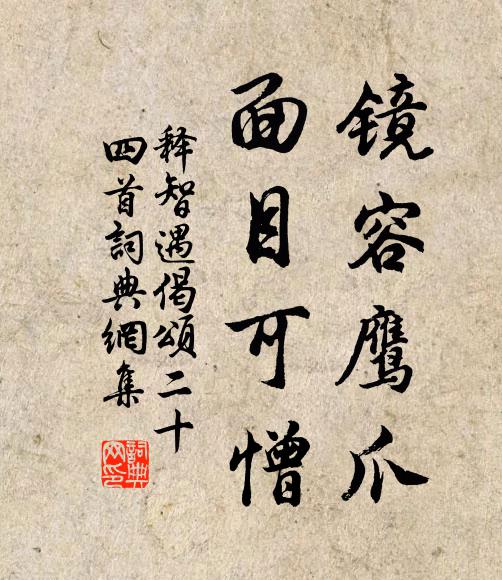 镜容鹰爪
面目可憎
释智遇偈頌二十
四首詞典網集
詞典網印